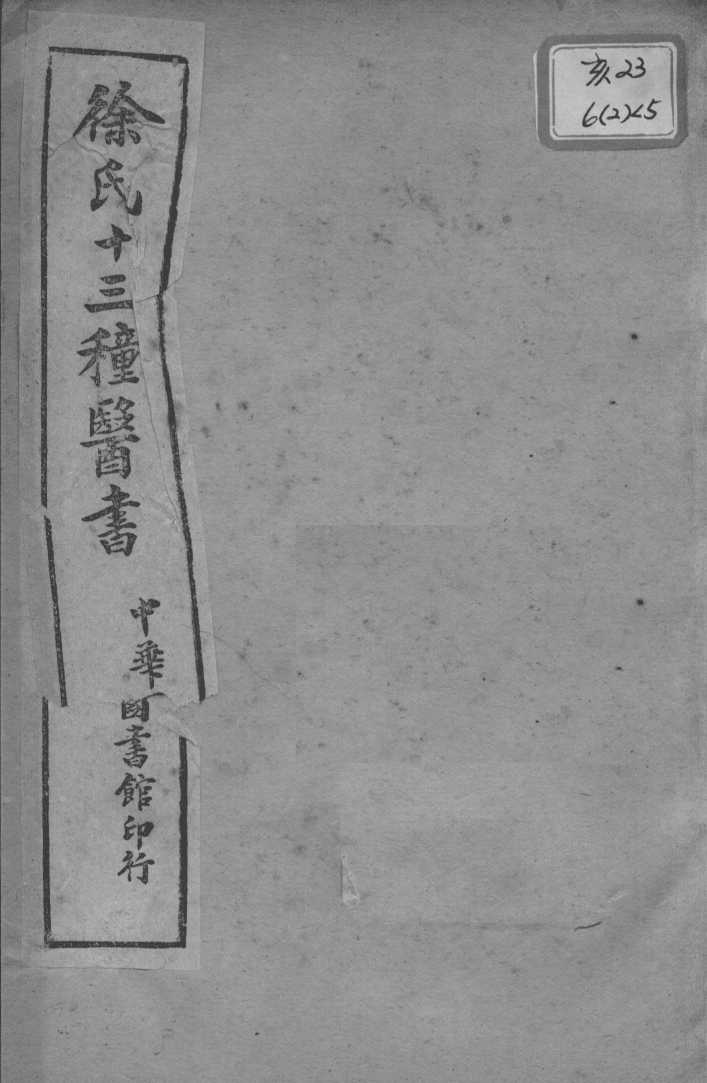 徐氏十三種醫書
中華圖書館印行
亥23
6(2)<5